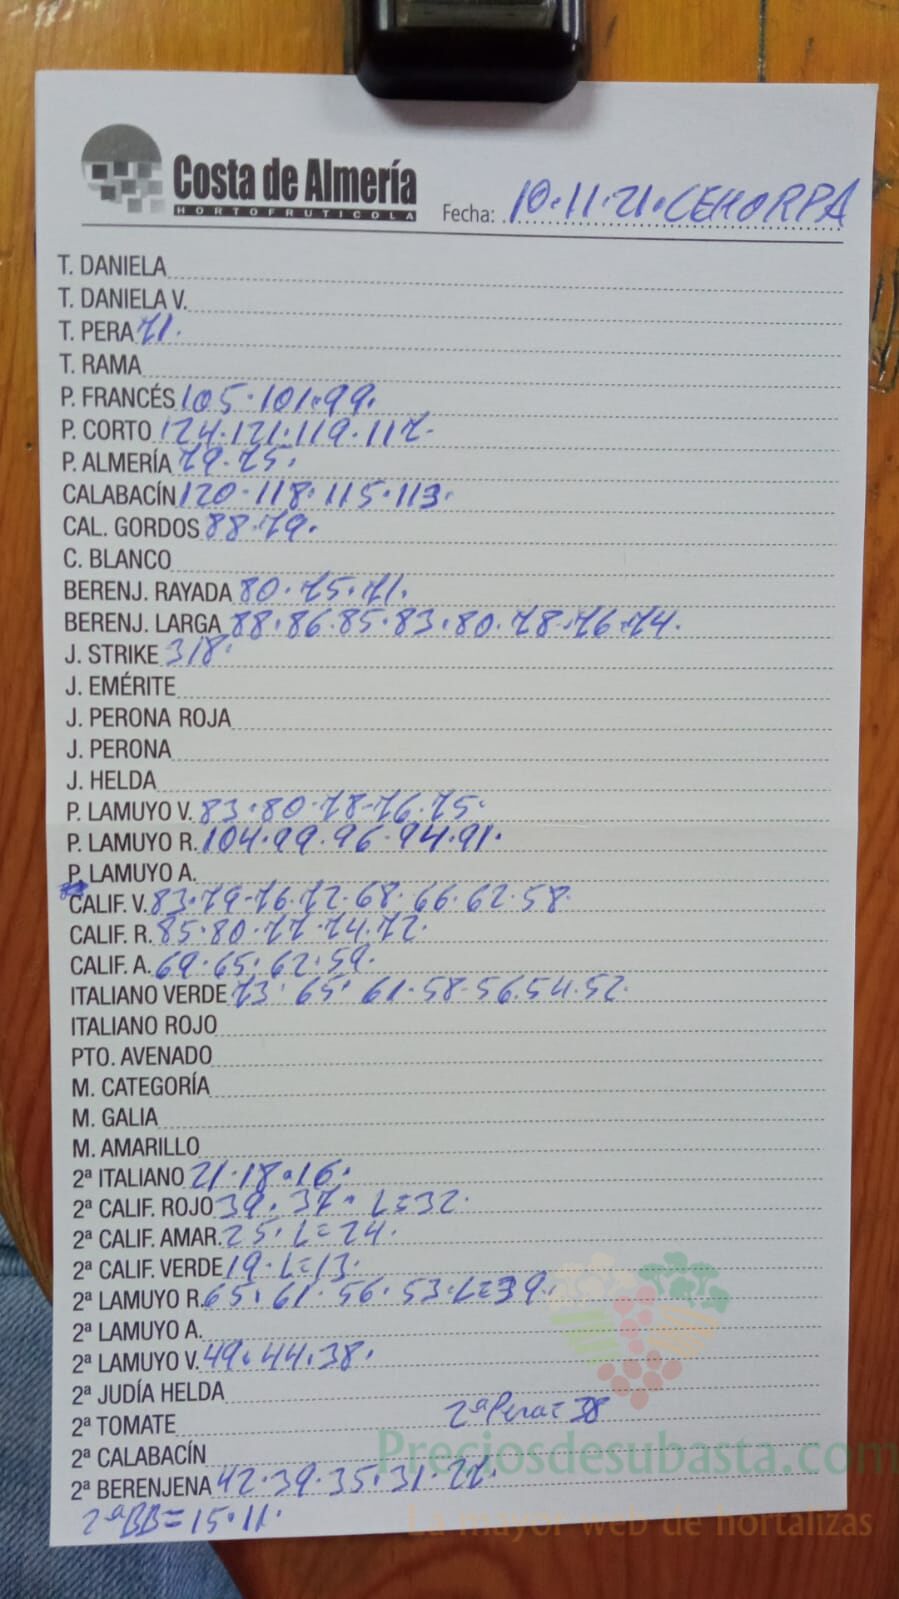 Costa de Almería
HORTOFRUTICOLA
Fecha: 10.11.21. CEHORPA
T. DANIELA
T. DANIELA V.
T. PERA 71.
T. RAMA
P. FRANCÉS 105.101.99.
P. CORTO 124.121.119.117.
P. ALMERÍA 79.75.
CALABACÍN 120.118.115.113.
CAL. GORDOS 88.79.
C. BLANCO
BERENJ. RAYADA 80.75.71.
BERENJ. LARGA 88.86.85.83.80.78.76.74.
J. STRIKE 318.
J. EMÉRITE
J. PERONA ROJA
J. PERONA
J. HELDA
P. LAMUYO V. 83.80.78.76.75.
P. LAMUYO R. 104.99.96.94.91.
P. LAMUYO A.
CALIF. V. 83.79.76.72.68.66.62.58
CALIF. R. 85.80.77.74.72.
CALIF. A. 69.65.62.59.
ITALIANO VERDE 73.65.61.58.56.54.52.
ITALIANO ROJO
PTO. AVENADO
M. CATEGORÍA
M. GALIA
M. AMARILLO
2ª ITALIANO 21.18.16.
2ª CALIF. ROJO 39.37. L=32.
2ª CALIF. AMAR. 25. L=24.
2ª CALIF. VERDE 19. L=13.
2ª LAMUYO R. 65.61.56.53. L=39.
2ª LAMUYO A.
2ª LAMUYO V. 49.44.38.
2ª JUDÍA HELDA
2ª TOMATE 2ª Pera= 38
2ª CALABACÍN
Preciosdesubasta.com
2ª BERENJENA 42.39.35.31.27.
2ªBB=15.11.
La mayor web de hortalizas